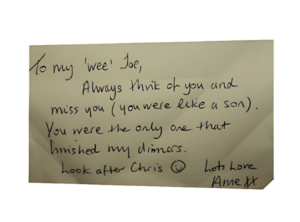 To my 'wee' Joe,
Always think of you and
miss you (you were like a son).
You were the only one that
finished my dinners.
Look after Chris ☺ Lots Love
Anne xx